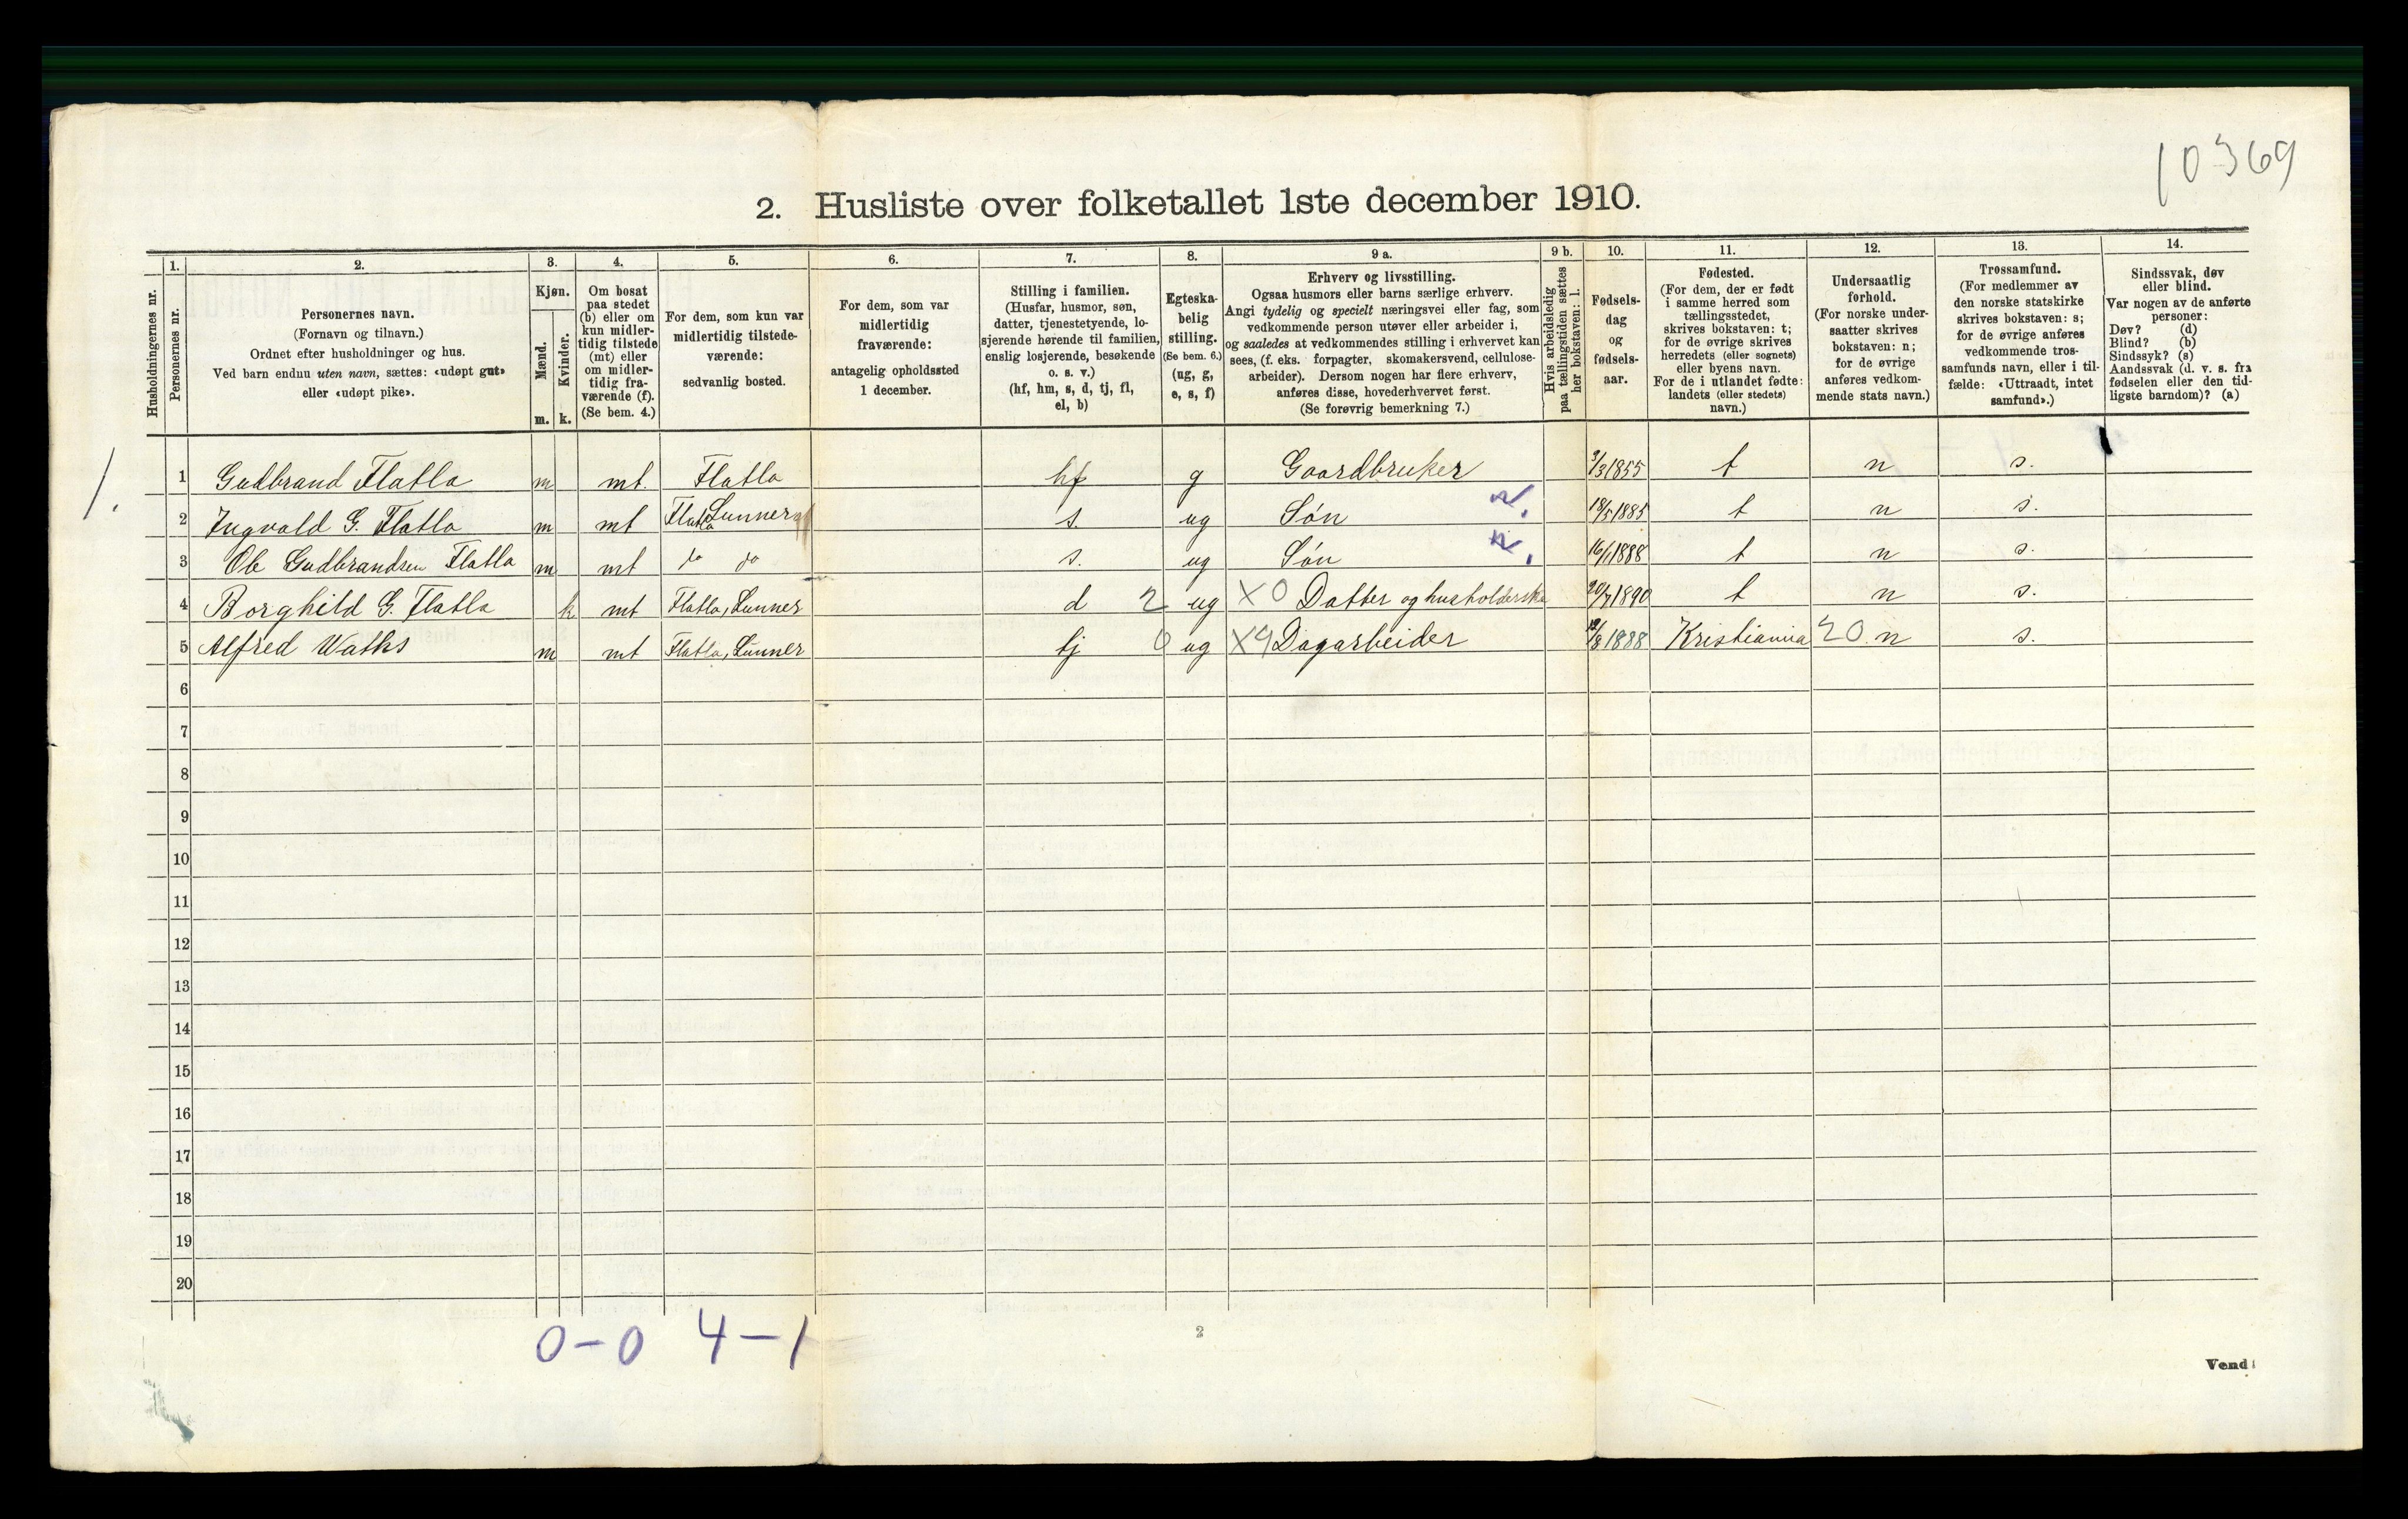 10369
2. Husliste over folketallet 1ste december 1910.
Husholdningernes nr.
1.
Personernes nr.
2.
Personernes navn.
(Fornavn og tilnavn.)
Ordnet efter husholdninger og hus.
Ved barn endnu uten navn, sættes: «udøpt gut»
eller «udøpt pike».
3.
Kjøn.
Mænd.
Kvinder.
m. k.
4.
Om bosat
paa stedet
(b) eller om
kun midler-
tidig tilstede
(mt) eller
om midler-
tidig fra-
værende (f).
(Se bem. 4.)
5.
For dem, som kun var
midlertidig tilstede-
værende:
sedvanlig bosted.
6.
For dem, som var
midlertidig
fraværende:
antagelig opholdssted
1 december.
7.
Stilling i familien.
(Husfar, husmor, søn,
datter, tjenestetyende, lo-
sjerende hørende til familien,
enslig losjerende, besøkende
o. s. v.)
(hf, hm, s, d, tj, fl,
el, b)
8.
Egteska-
belig
stilling.
(Se bem. 6.)
(ug, g,
e, s, f)
9 a.
Erhverv og livsstilling.
Ogsaa husmors eller barns særlige erhverv.
Angi tydelig og specielt næringsvei eller fag, som
vedkommende person utøver eller arbeider i,
og saaledes at vedkommendes stilling i erhvervet kan
sees, (f. eks. forpagter, skomakersvend, cellulose-
arbeider). Dersom nogen har flere erhverv,
anføres disse, hovederhvervet først.
(Se forøvrig bemerkning 7.)
9 b.
Hvis arbeidsledig
paa tællingstiden sættes
her bokstaven: l.
10.
Fødsels-
dag
og
fødsels-
aar.
11.
Fødested.
(For dem, der er født
i samme herred som
tællingsstedet,
skrives bokstaven: t;
for de øvrige skrives
herredets (eller sognets)
eller byens navn.
For de i utlandet fødte:
landets (eller stedets)
navn.)
12.
Undersaatlig
forhold.
(For norske under-
saatter skrives
bokstaven: n;
for de øvrige
anføres vedkom-
mende stats navn.)
13.
Trossamfund.
(For medlemmer av
den norske statskirke
skrives bokstaven: s;
for de øvrige anføres
vedkommende tros-
samfunds navn, eller i til-
fælde: «Uttraadt, intet
samfund».)
14.
Sindssvak, døv
eller blind.
Var nogen av de anførte
personer:
Døv? (d)
Blind? (b)
Sindssyk? (s)
Aandssvak (d. v. s. fra
fødselen eller den tid-
ligste barndom)? (a)
1. 1 Gudbrand Flatla m mt. Flatla hf g Gaardbruker 3/3 1855 t n s.
2 Ingvald G. Flatla m mt Flatla Lunner s. ug Søn 18/5 1885 t n s.
3 Ole Gudbrandsen Flatla m mt do do s. ug Søn 16/1 1888 t n s.
4 Borghild G. Flatla k mt Flatla, Lunner d 2 ug X0 Datter og husholderske 20/7 1890 t n s.
5 Alfred Waths m mt Flatla, Lunner tj 0 ug X9 Dagarbeider 12/8 1888 Kristiania 20 n s.
6
7
8
9
10
11
12
13
14
15
16
17
18
19
20
0-0 4-1
2
Vend!